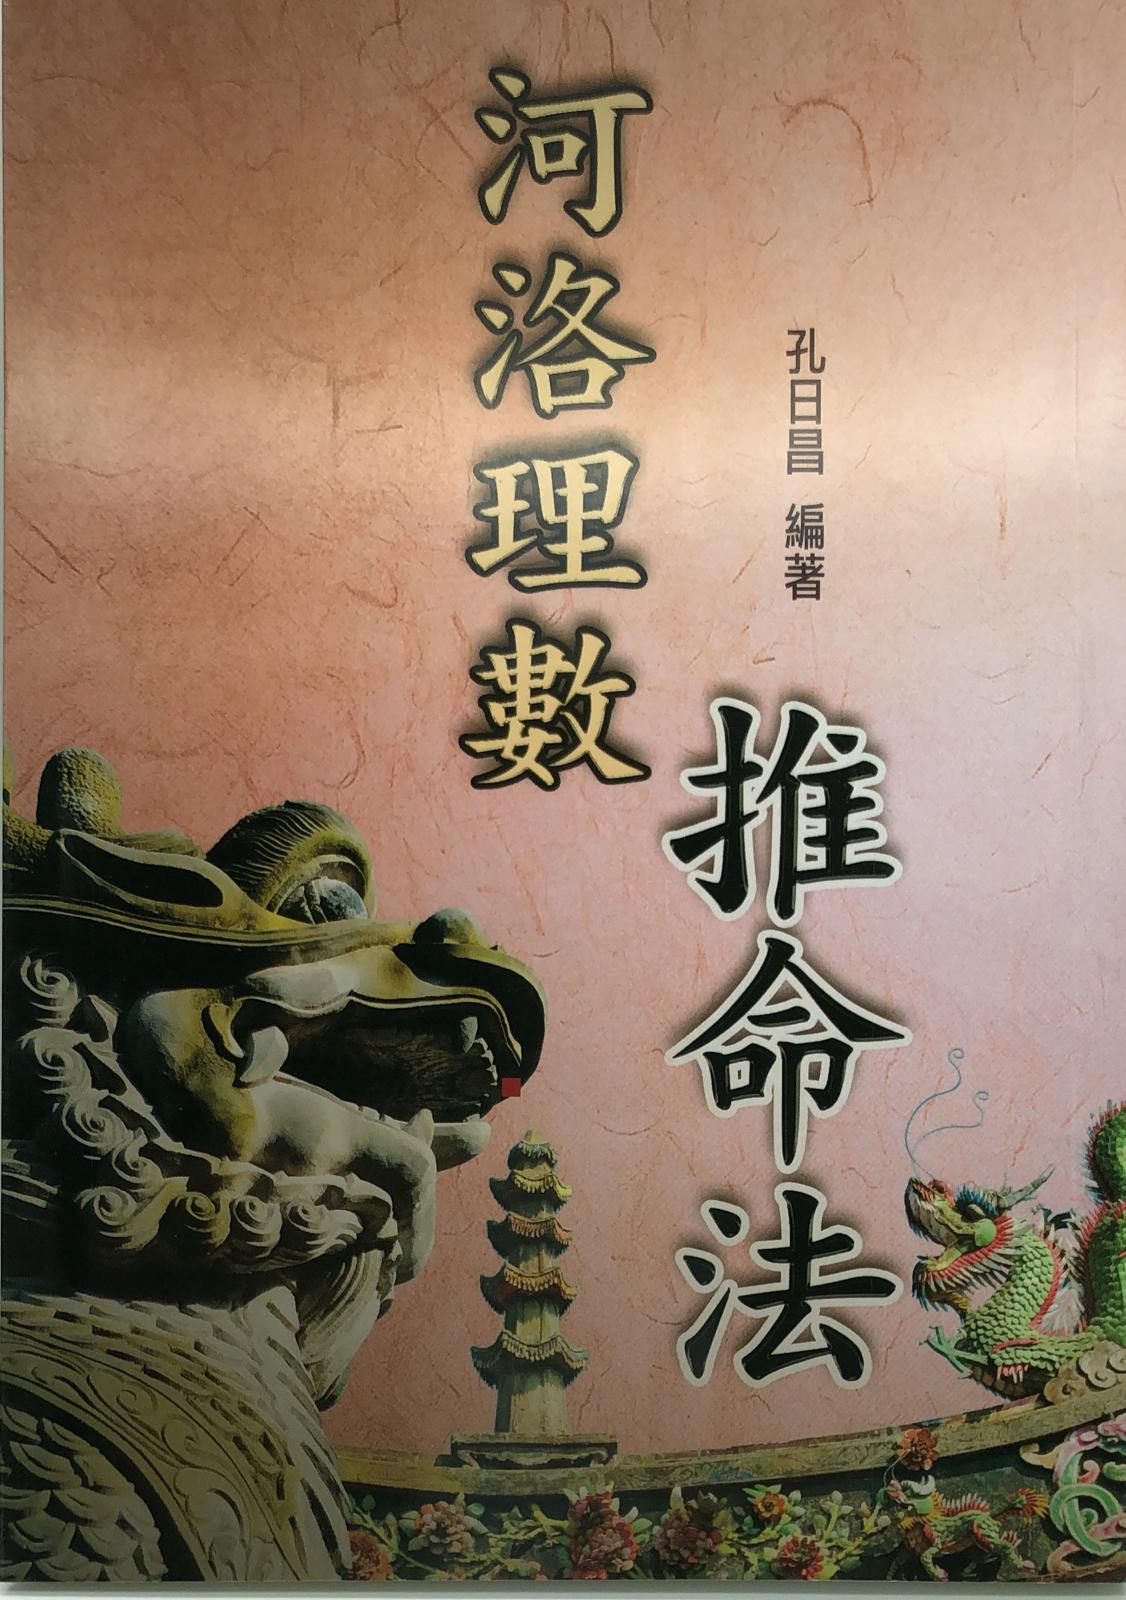 河洛理數
推命法
孔日昌 編著